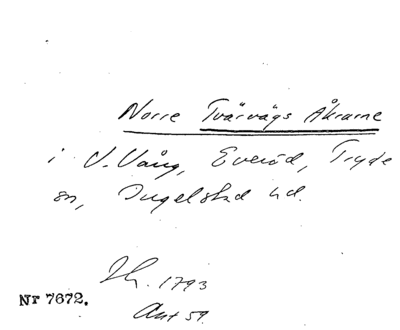 Norre Tvärvägs Åkrarne
i V. Vång, Everöd, Tryde
sn, Ingelstad hd.
1793
Nr 7672.
Akt 59.